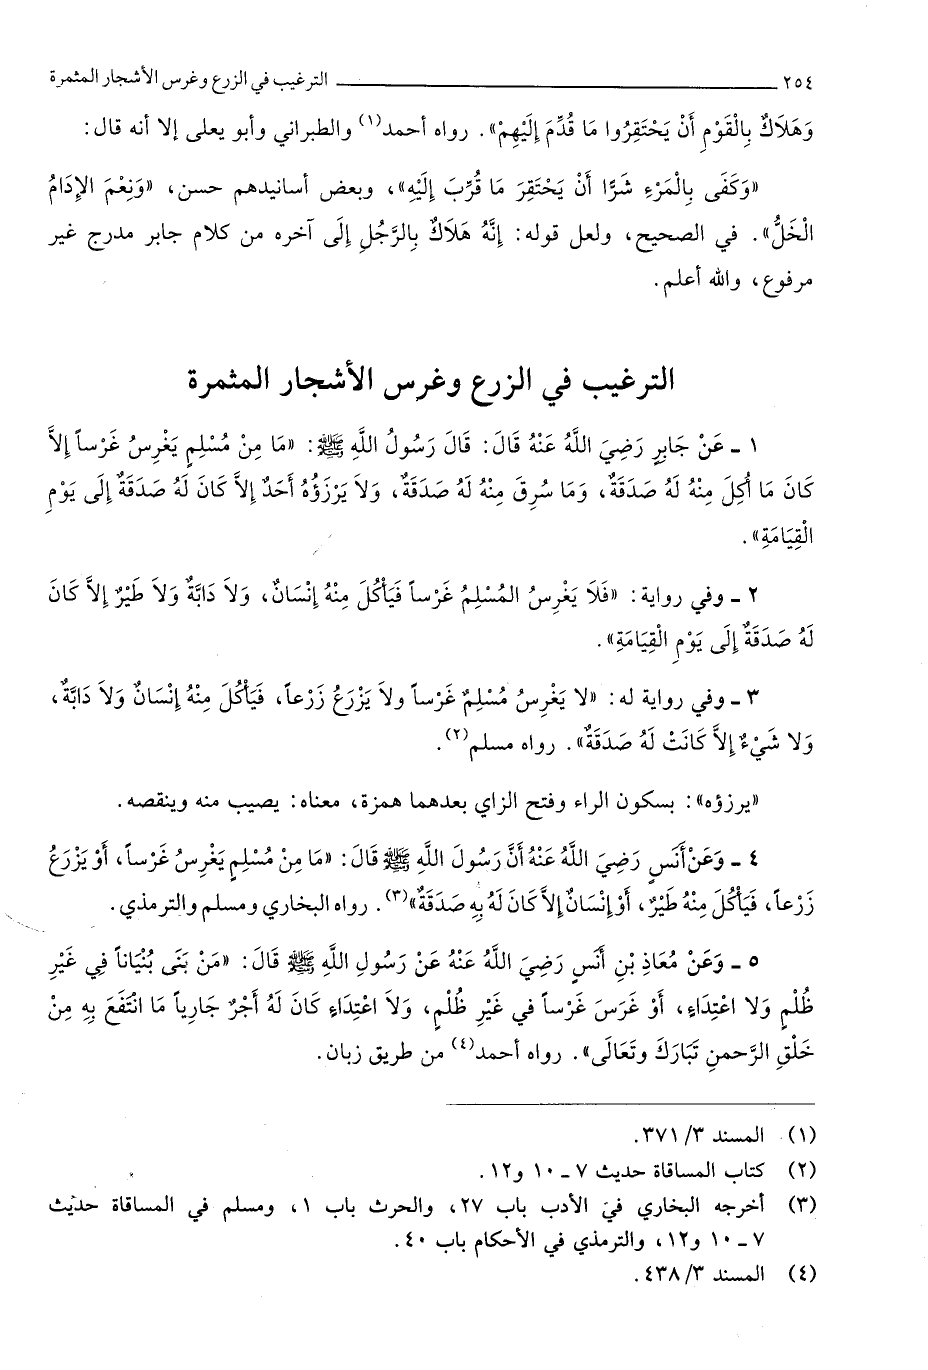 ٢٥٤ ــــــ الترغيب في الزرع وغرس الأشجار المثمرة
وَهَلَاكٌ بِالْقَوْمِ أَنْ يَحْتَقِرُوا مَا قُدِّمَ إِلَيْهِمْ». رواه أحمد(١) والطبراني وأبو يعلى إلا أنه قال:
«وَكَفَى بِالْمَرْءِ شَرًّا أَنْ يَحْتَقِرَ مَا قُرِّبَ إِلَيْهِ»، وبعض أسانيدهم حسن، «وَنِعْمَ الإِدَامُ
الْخَلُّ». في الصحيح، ولعل قوله: إِنَّهُ هَلَاكٌ بِالرَّجُلِ إِلَى آخره من كلام جابر مدرج غير
مرفوع، والله أعلم.
الترغيب في الزرع وغرس الأشجار المثمرة
١ ـ عَنْ جَابِرٍ رَضِيَ اللَّهُ عَنْهُ قَالَ: قَالَ رَسُولُ اللَّهِ ﷺ: «مَا مِنْ مُسْلِمٍ يَغْرِسُ غَرْساً إِلاَّ
كَانَ مَا أُكِلَ مِنْهُ لَهُ صَدَقَةٌ، وَمَا سُرِقَ مِنْهُ لَهُ صَدَقَةٌ، وَلاَ يَرْزَؤُهُ أَحَدٌ إِلاَّ كَانَ لَهُ صَدَقَةٌ إِلَى يَوْمِ
الْقِيَامَةِ».
٢ ـ وفي رواية: «فَلاَ يَغْرِسُ المُسْلِمُ غَرْساً فَيَأْكُلَ مِنْهُ إِنْسَانٌ، وَلاَ دَابَّةٌ وَلاَ طَيْرٌ إِلاَّ كَانَ
لَهُ صَدَقَةٌ إِلَى يَوْمِ الْقِيَامَةِ».
٣ ـ وفي رواية له: «لا يَغْرِسُ مُسْلِمٌ غَرْساً ولاَ يَزْرَعُ زَرْعاً، فَيَأْكُلَ مِنْهُ إِنْسَانٌ وَلاَ دَابَّةٌ،
وَلا شَيْءٌ إِلاَّ كَانَتْ لَهُ صَدَقَةٌ». رواه مسلم(٢).
«يرزؤه»: بسكون الراء وفتح الزاي بعدهما همزة، معناه: يصيب منه وينقصه.
٤ ـ وَعَنْ أَنَسٍ رَضِيَ اللَّهُ عَنْهُ أَنَّ رَسُولَ اللَّهِ ﷺ قَالَ: «مَا مِنْ مُسْلِمٍ يَغْرِسُ غَرْساً، أَوْ يَزْرَعُ
زَرْعاً، فَيَأْكُلَ مِنْهُ طَيْرٌ، أَوْ إِنْسَانٌ إِلاَّ كَانَ لَهُ بِهِ صَدَقَةٌ»(٣). رواه البخاري ومسلم والترمذي.
٥ ـ وَعَنْ مُعَاذِ بْنِ أَنَسٍ رَضِيَ اللَّهُ عَنْهُ عَنْ رَسُولِ اللَّهِ ﷺ قَالَ: «مَنْ بَنَى بُنْيَاناً فِي غَيْرِ
ظُلْمٍ وَلا اعْتِدَاءٍ، أَوْ غَرَسَ غَرْساً في غَيْرِ ظُلْمٍ، وَلاَ اعْتِدَاءٍ كَانَ لَهُ أَجْرٌ جَارِياً مَا انْتَفَعَ بِهِ مِنْ
خَلْقِ الرَّحمنِ تَبَارَكَ وتَعَالَى». رواه أحمد(٤) من طريق زبان.
(١) المسند ٣/ ٣٧١.
(٢) كتاب المساقاة حديث ٧ ـ ١٠ و١٢.
(٣) أخرجه البخاري في الأدب باب ٢٧، والحرث باب ١، ومسلم في المساقاة حديث
٧ ـ ١٠ و١٢، والترمذي في الأحكام باب ٤٠.
(٤) المسند ٣/ ٤٣٨.